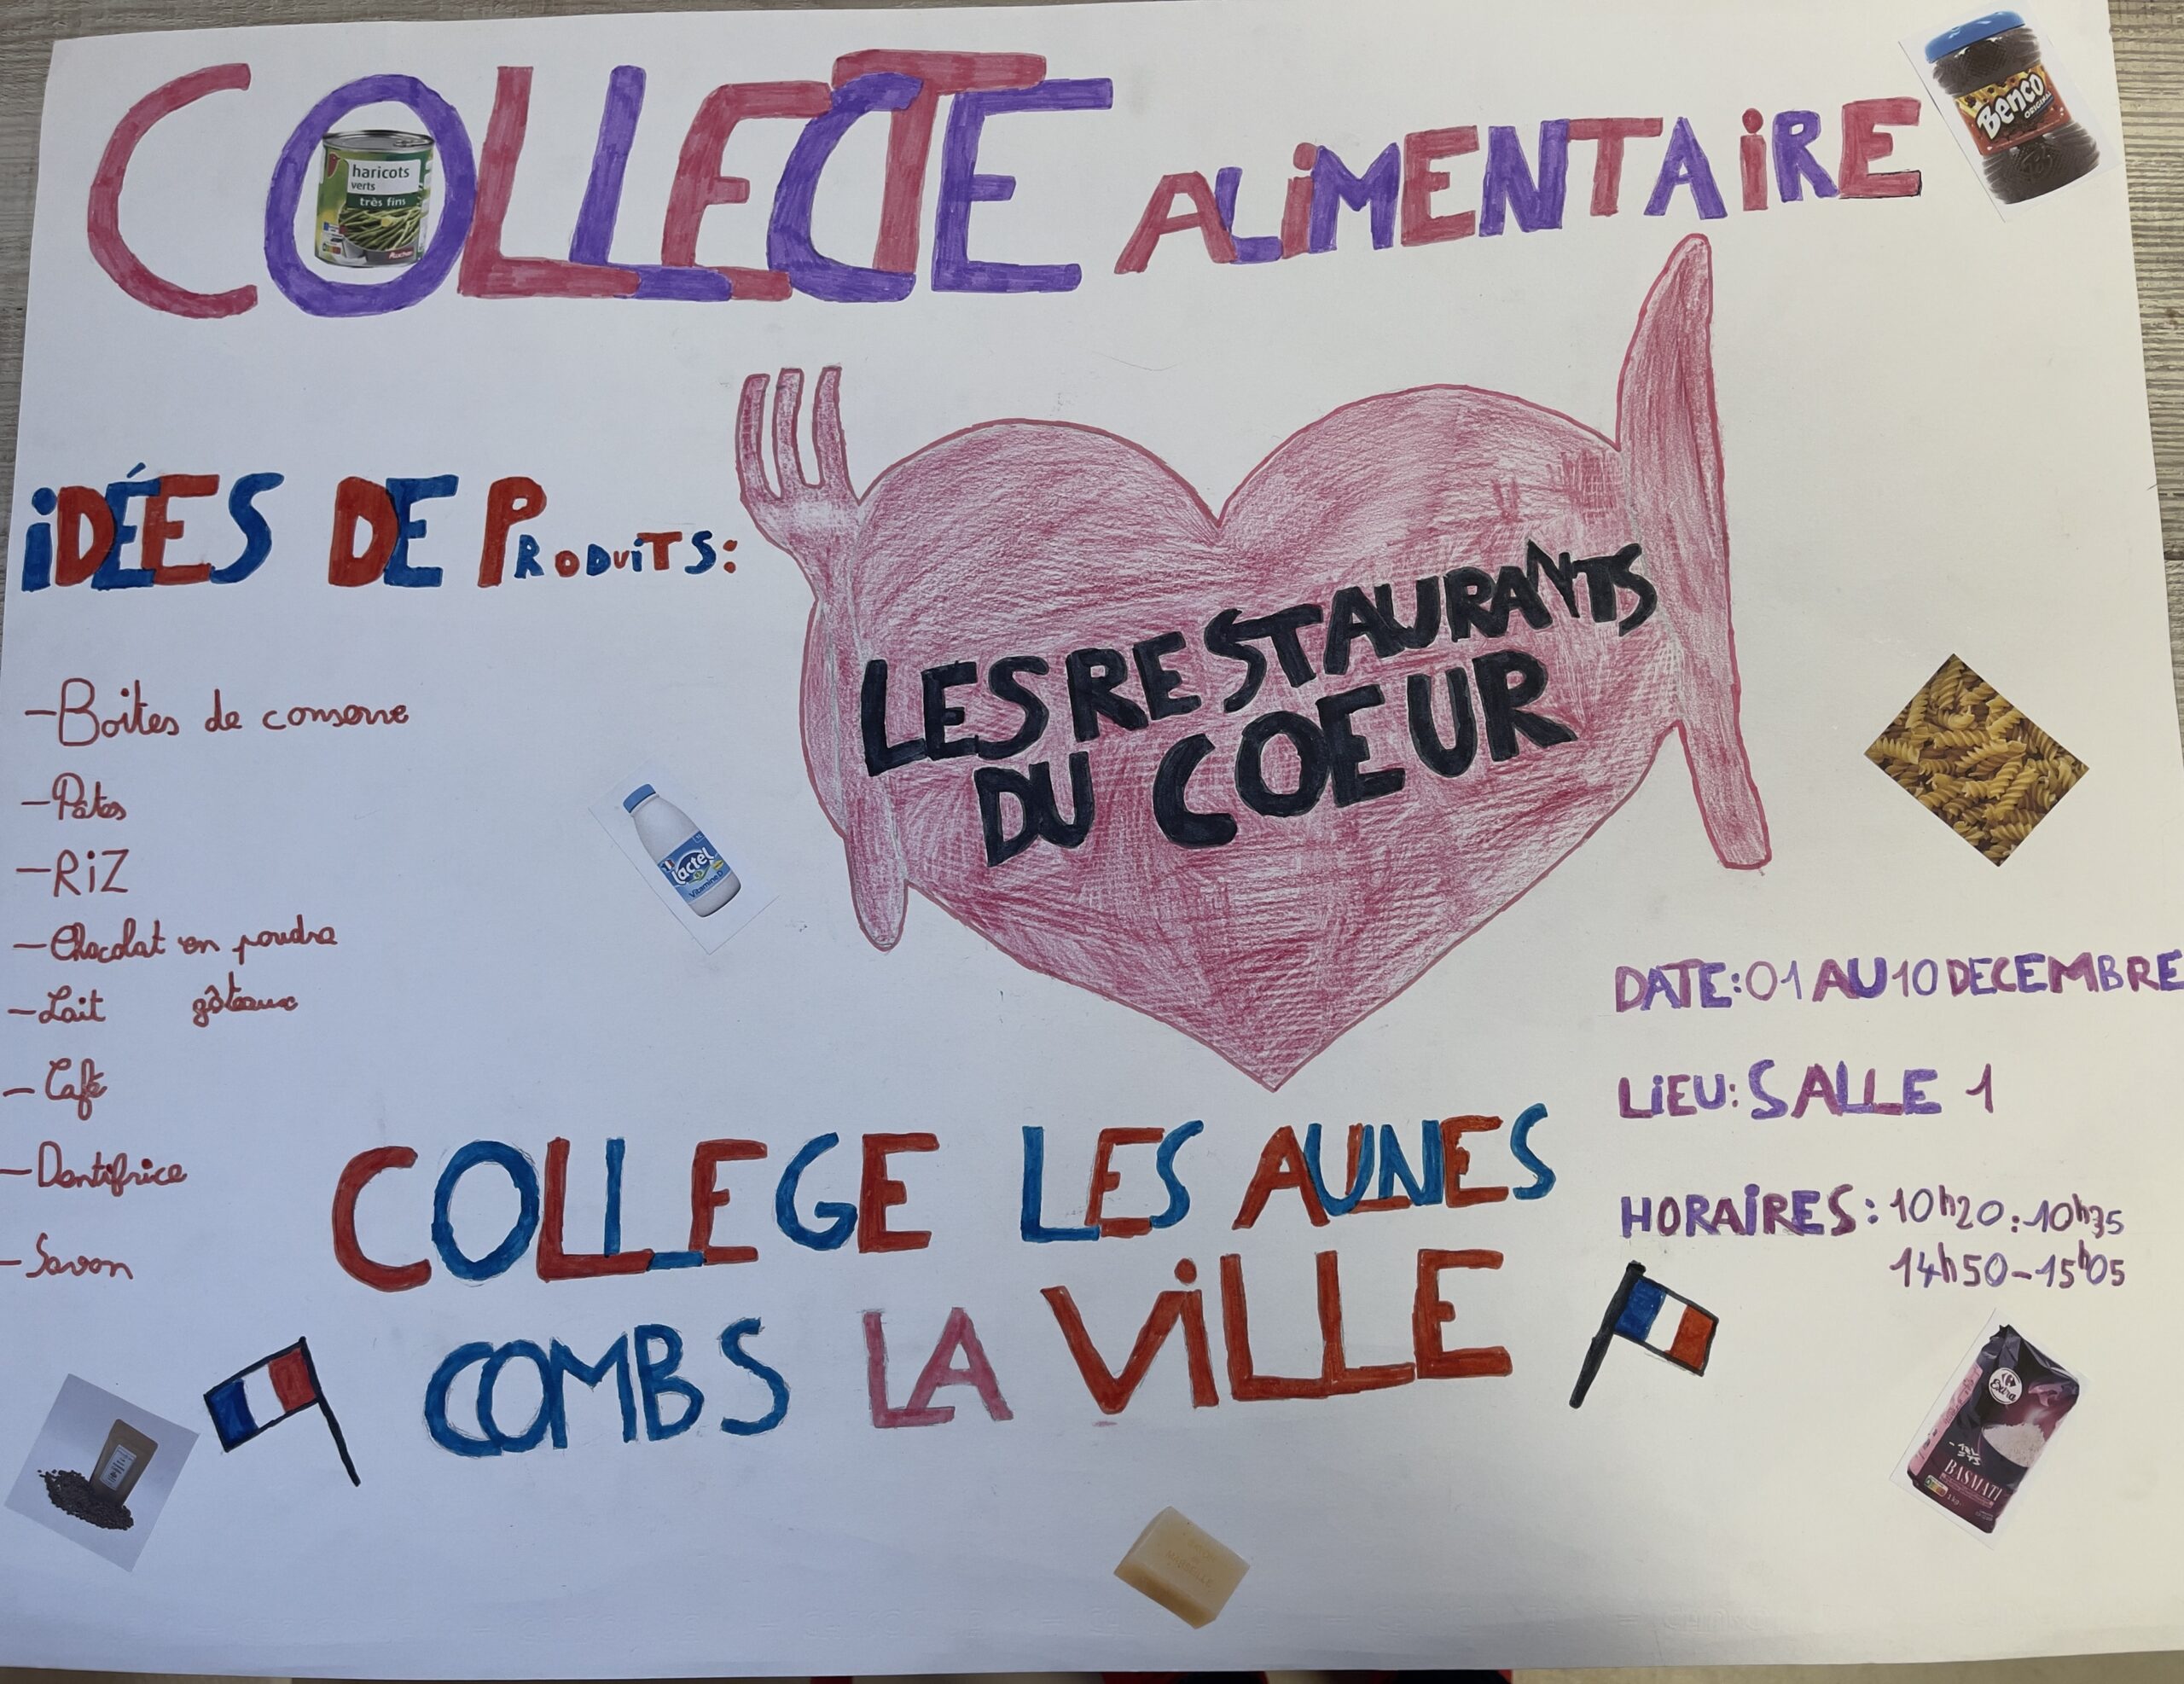 COLLECTE ALIMENTAIRE
haricots
verts
très fins
Auchan
Benco
ORIGINAL
IDÉES DE PRODUITS:
LES RESTAURANTS
DU COEUR
-Boites de conserve
-Pâtes
-RIZ
-Chocolat en poudre
-Lait gâteaux
-Café
-Dentifrice
-Savon
lactel
Vitamine D
DATE:01 AU 10 DECEMBRE
LIEU: SALLE 1
HORAIRES: 10h20:10h35
14h50-15h05
COLLEGE LES AUNES
COMBS LA VILLE
Extra
BASMATI
MARSEILLE